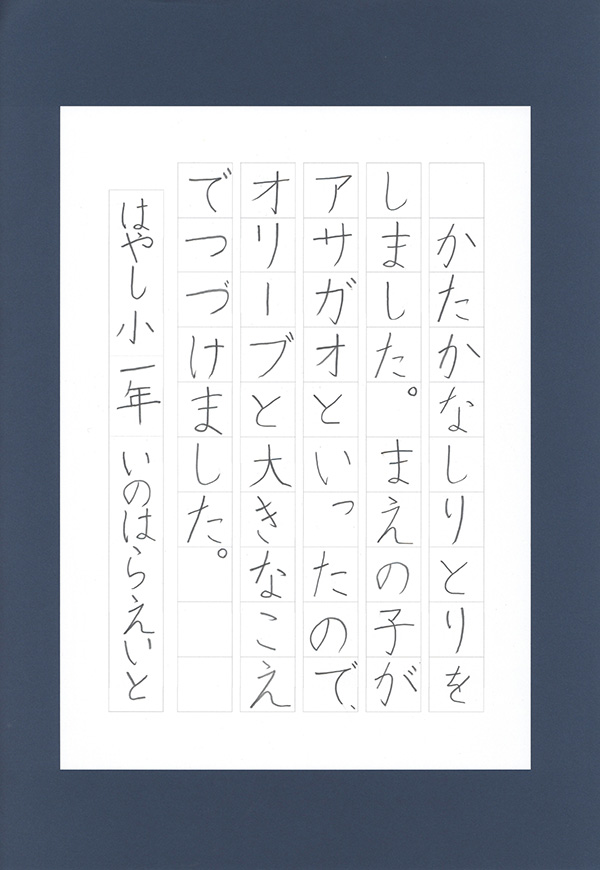 かたかなしりとりを
しました。まえの子が
アサガオといったので、
オリーブと大きなこえ
でつづけました。
はやし小 一年 いのはらえいと